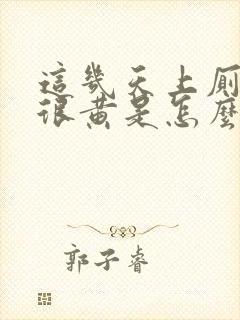 這幾天上廁
很黃是怎麼
郭子睿